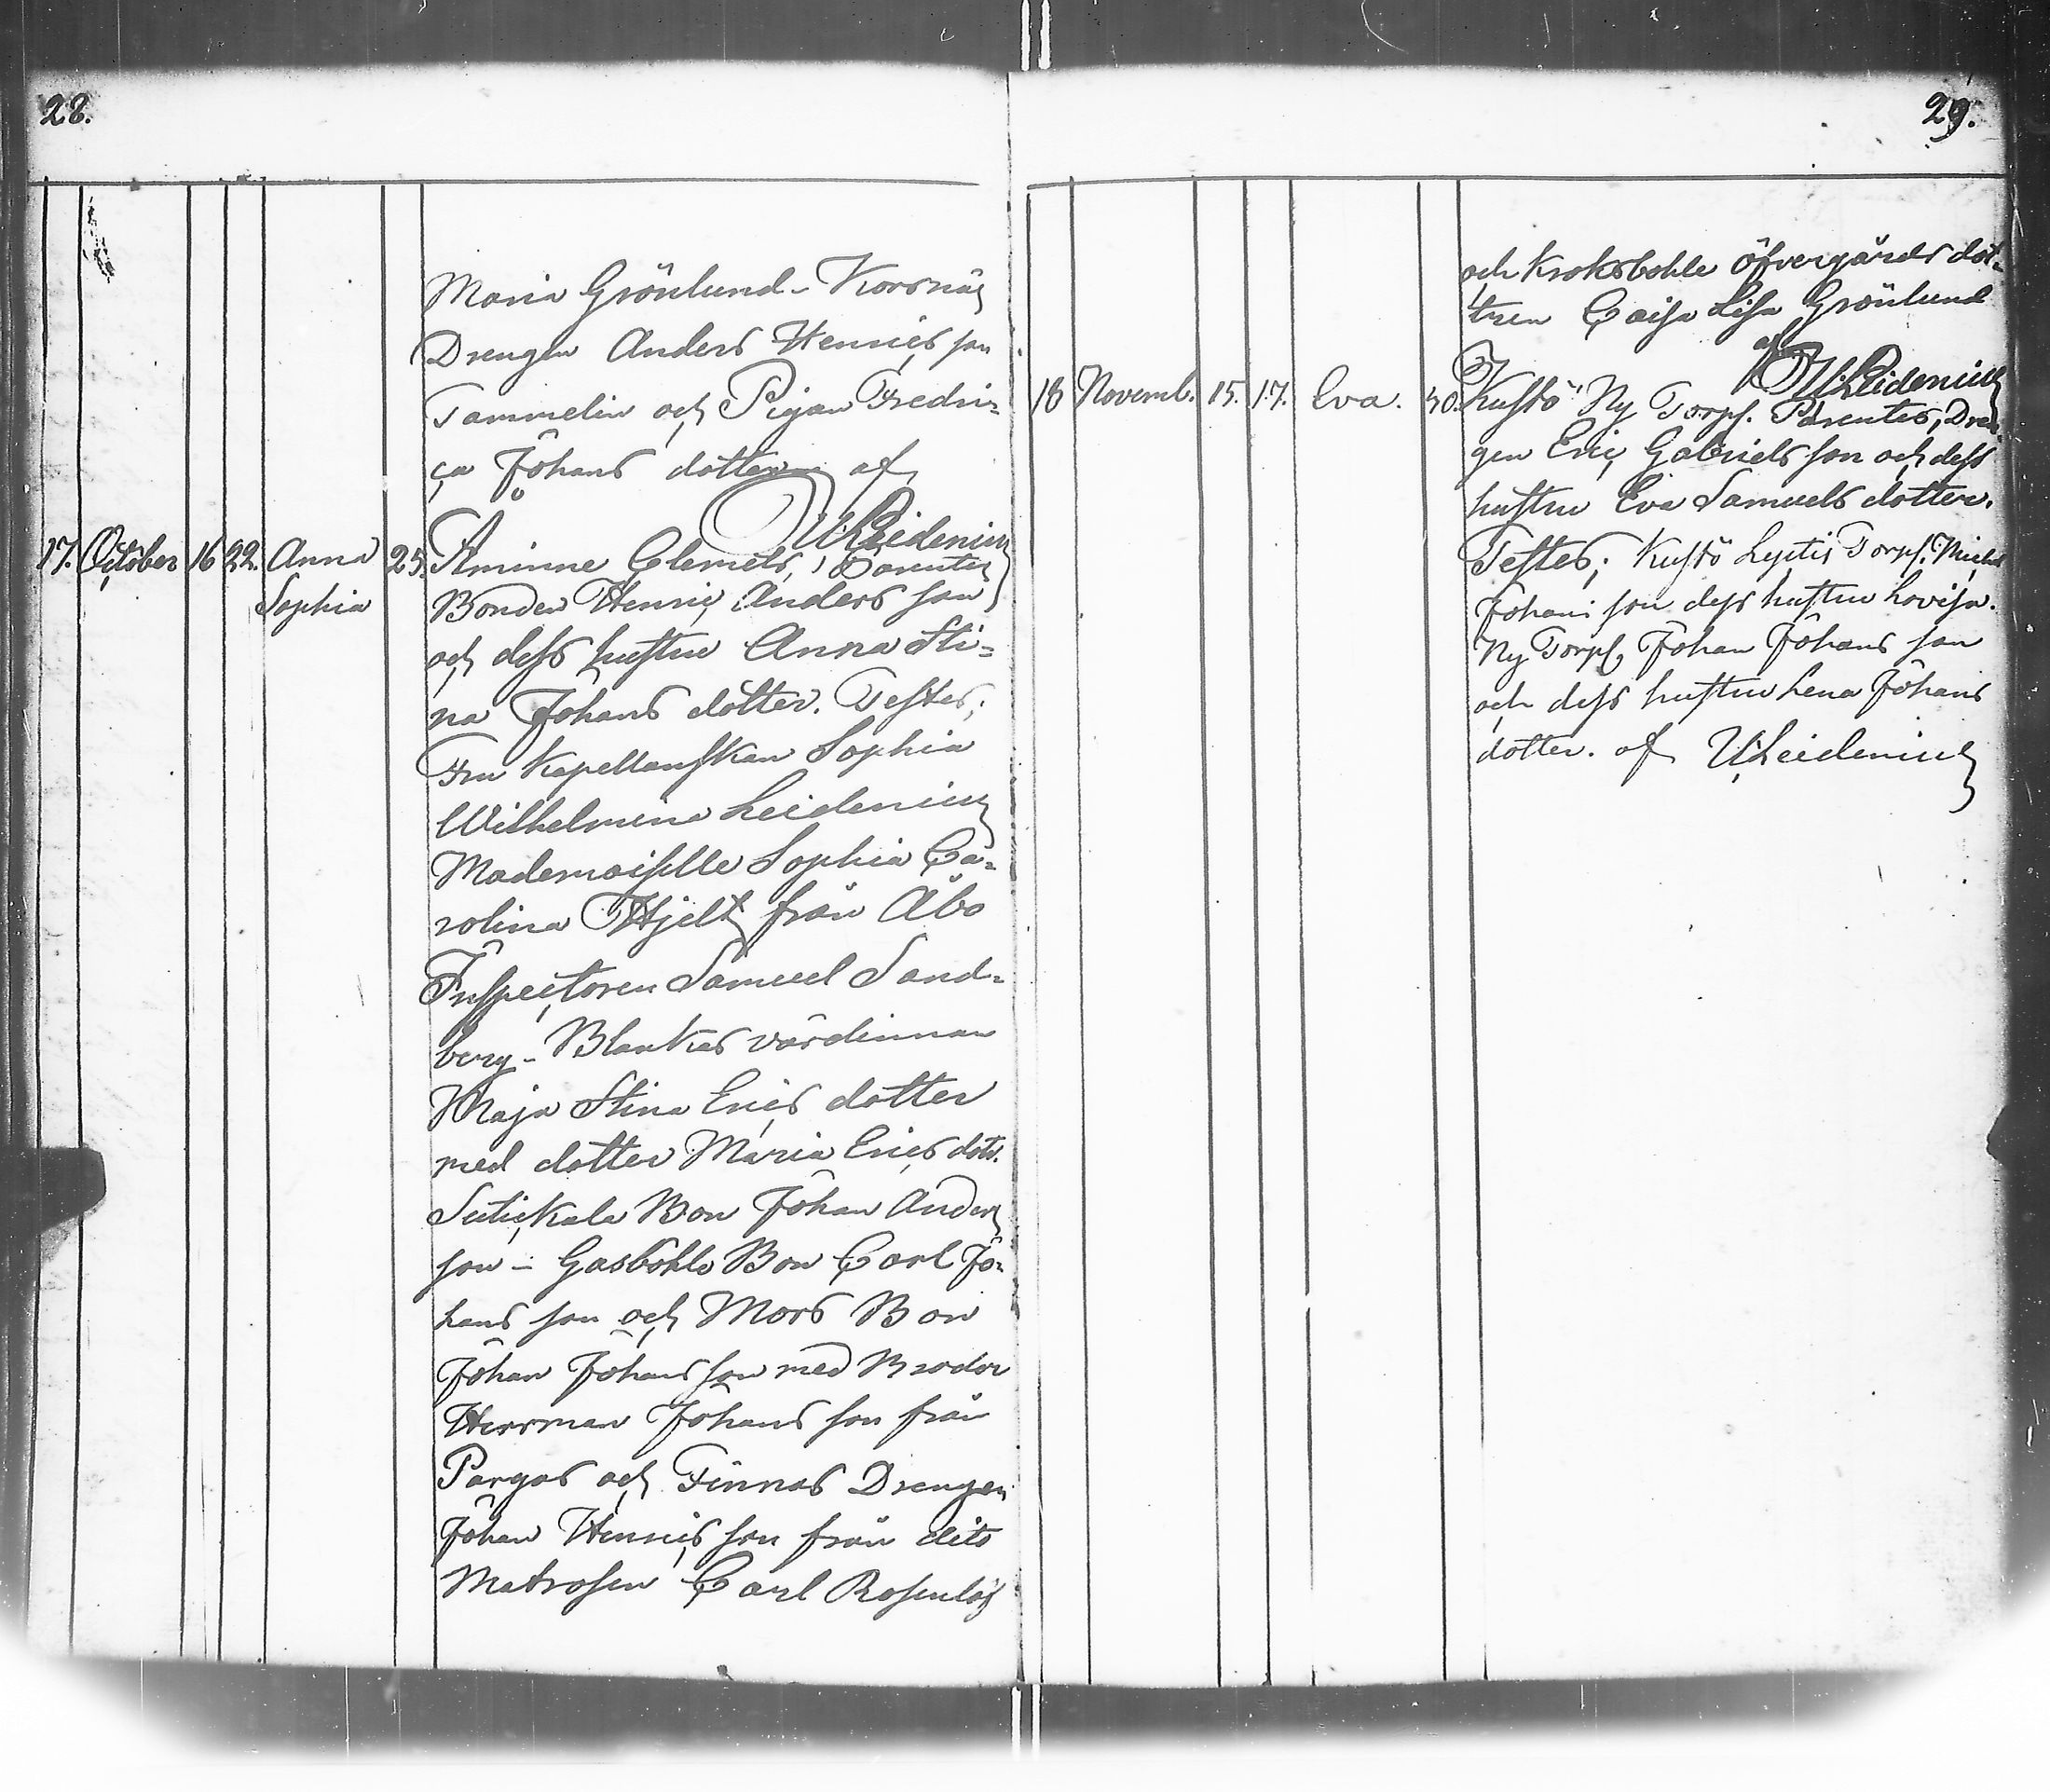 28.
Maria Grönlund - Korsnäs
Drengen Anders Henrics son
Tammelin och Pigan Fredri=
ca Johans dotter af
U: Leidenius
17. October 16 22. Anna 25. Aminne Clemets, Parentes
Sophia Bonden Henric Anders son
och dess hustru Anna Sti=
na Johans dotter. Testes;
Fru Kapellanskan Sophia
Wilhelmina Leidenius
Mademoiselle Sophia Ca=
rolina Hjelt från Åbo
Inspectoren Samuel Sand=
berg - Blankas värdinnan
Maja Stina Erics dotter
med dotter Maria Erics dotr.
Bon Johan Anders
son - Gasbohle Bon Carl Jo=
hans son och Mors Bon
Johan Johans son med Broder
Herrman Johans son från
Pargas och Finnas Drengen
Johan Henrics son från dito
Matrosen Carl Rosenlöf
29.
och Kroksbohle öfvergårds dot=
tren Caisa Lisa Grönlund
af U: Leidenius
18 Novemb. 15. 17. Eva. 30. Kustö Ny Torps. Parentes, Dren=
gen Eric Gabriels son och dess
hustru Eva Samuels dotter.
Testes; Kustö Leptis Torps. Michel
Johans son dess hustru Lovisa.
Ny Torps, Johan Johans son
och dess hustru Lena Johans
dotter. af U: Leidenius